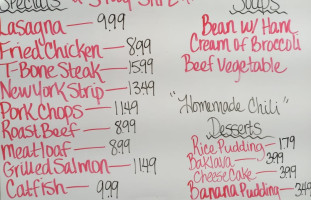 Specials
Lasagna — 9.99
Fried Chicken — 8.99
T-Bone Steak — 15.99
New York Strip — 13.49
Pork Chops — 11.49
Roast Beef — 8.99
Meatloaf — 8.99
Grilled Salmon — 11.49
Catfish — 9.99
Soups
Bean w/ Ham
Cream of Broccoli
Beef Vegetable
"Homemade Chili"
Desserts
Rice Pudding — 1.79
Baklava — 3.99
Cheese Cake — 3.99
Banana Pudding — 3.49